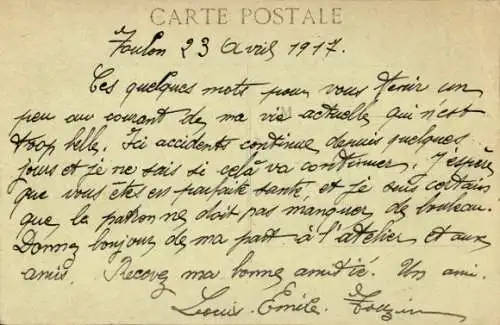 CARTE POSTALE
Toulon 23 Avril 1917.
Ces quelques mots pour vous tenir un
peu au courant de ma vie actuelle qui n'est
trop belle. Ici accidents continue depuis quelques
jours et je ne sais si celà va continuer. J'espère
que vous êtes en parfaite santé, et je suis certain
que le patron ne doit pas manquer de bouleau.
Donnez bonjour de ma part à l'atelier et aux
amis. Recevez ma bonne amitié. Un ami.
Louis. Emile.